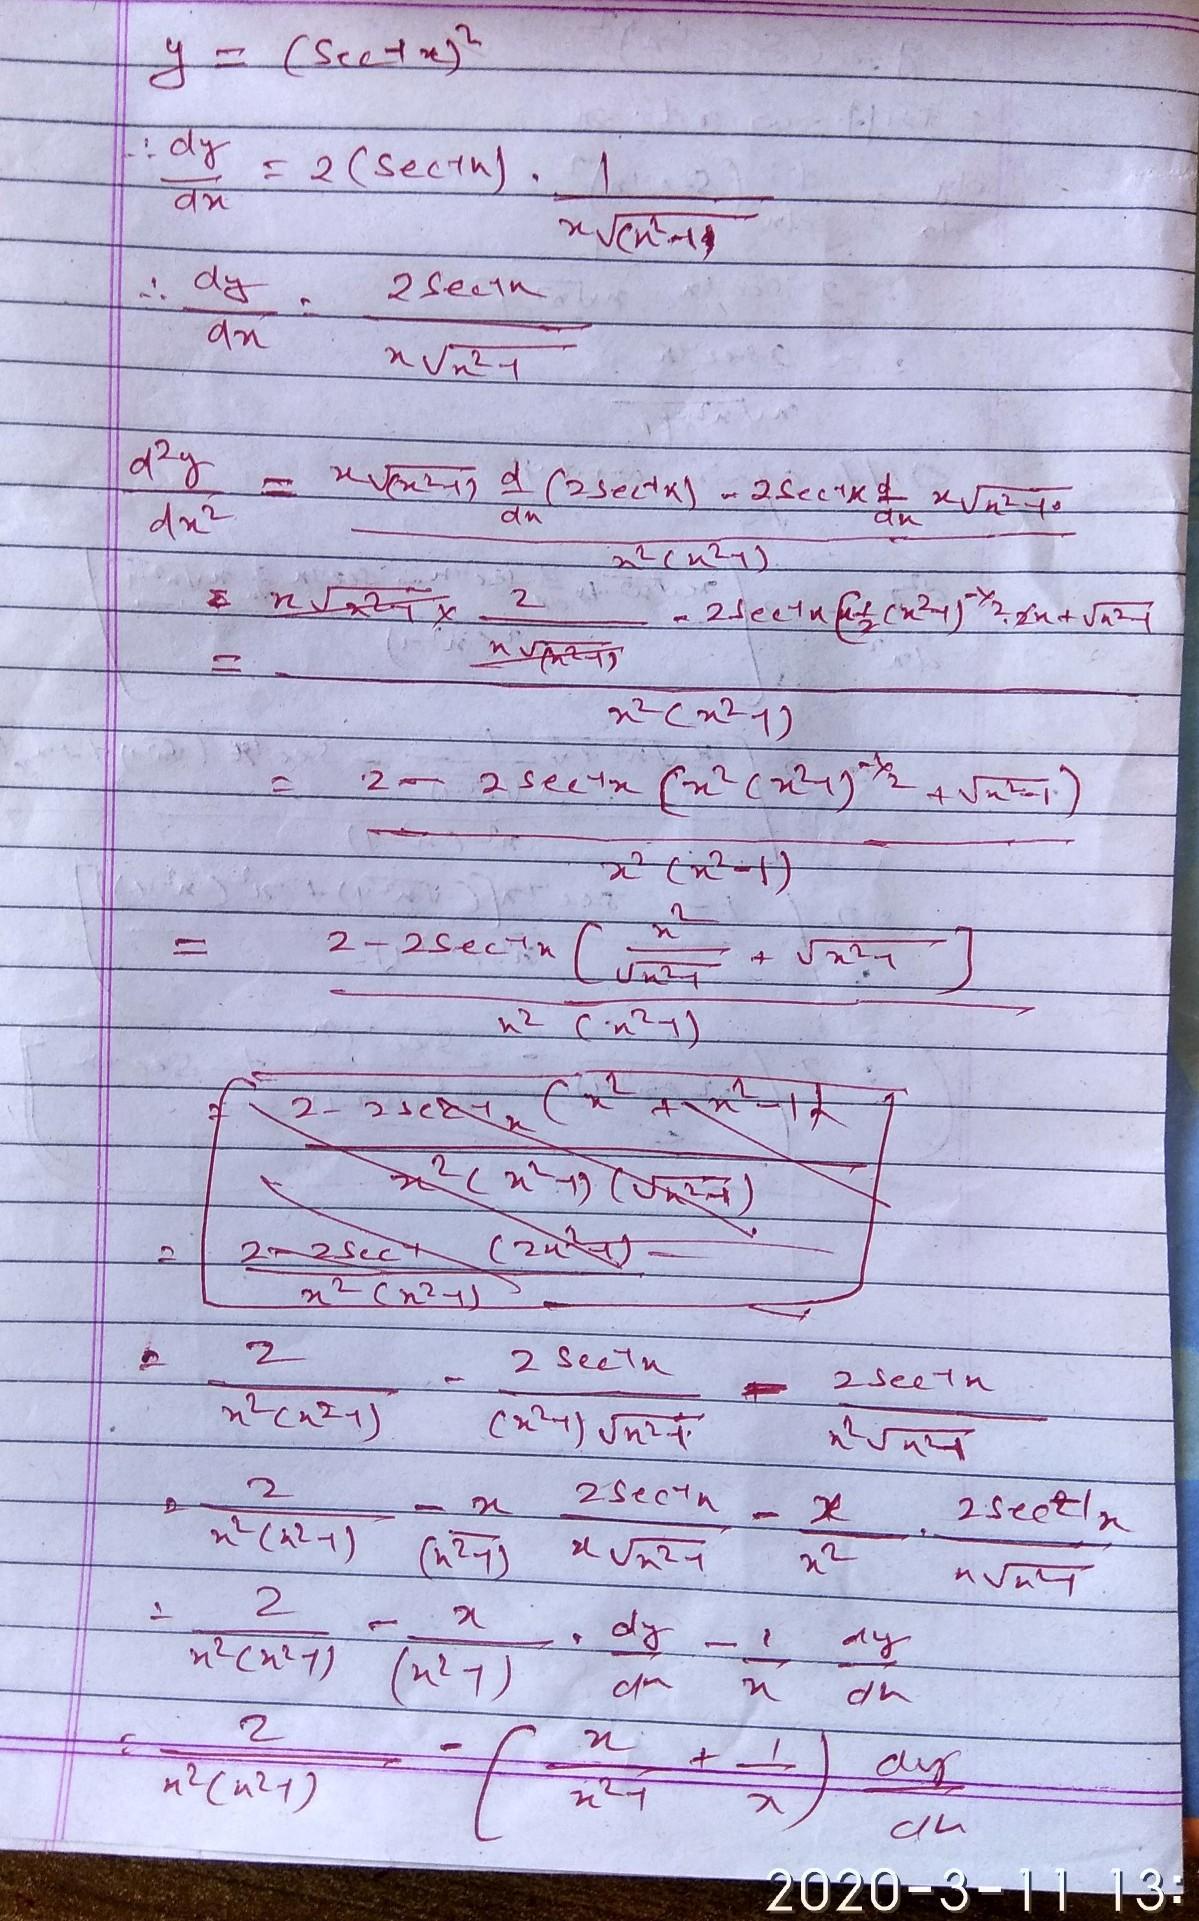 y = (sec⁻¹x)²
∴ dy/dx = 2(sec⁻¹x) · 1/(x√(x²-1))
∴ dy/dx = 2sec⁻¹x/(x√x²-1)
d²y/dx² = [x√(x²-1) d/dx (2sec⁻¹x) - 2sec⁻¹x d/dx x√x²-1]/(x²(x²-1))
= [x√x²-1 × 2/(x√(x²-1)) - 2sec⁻¹x [x½(x²-1)^-½ · 2x + √x²-1]/(x²(x²-1))
= [2 - 2sec⁻¹x (x²(x²-1)^-½ + √x²-1)]/(x²(x²-1))
= [2 - 2sec⁻¹x [x²/√x²-1 + √x²-1]]/(x²(x²-1))
= [2 - 2sec⁻¹x (x² + x²-1)]/(x²(x²-1)(√x²-1))
= [2 - 2sec⁻¹ (2x²-1)]/(x²(x²-1))
= 2/(x²(x²-1)) - 2sec⁻¹x/((x²-1)√x²-1) - 2sec⁻¹x/(x²√x²-1)
= 2/(x²(x²-1)) - x/(x²-1) 2sec⁻¹x/(x√x²-1) - x/x² · 2sec⁻¹x/(x√x²-1)
= 2/(x²(x²-1)) - x/(x²-1) · dy/dx - 1/x dy/dx
= 2/(x²(x²-1)) - (x/(x²-1) + 1/x) dy/dx
2020-3-11 13: